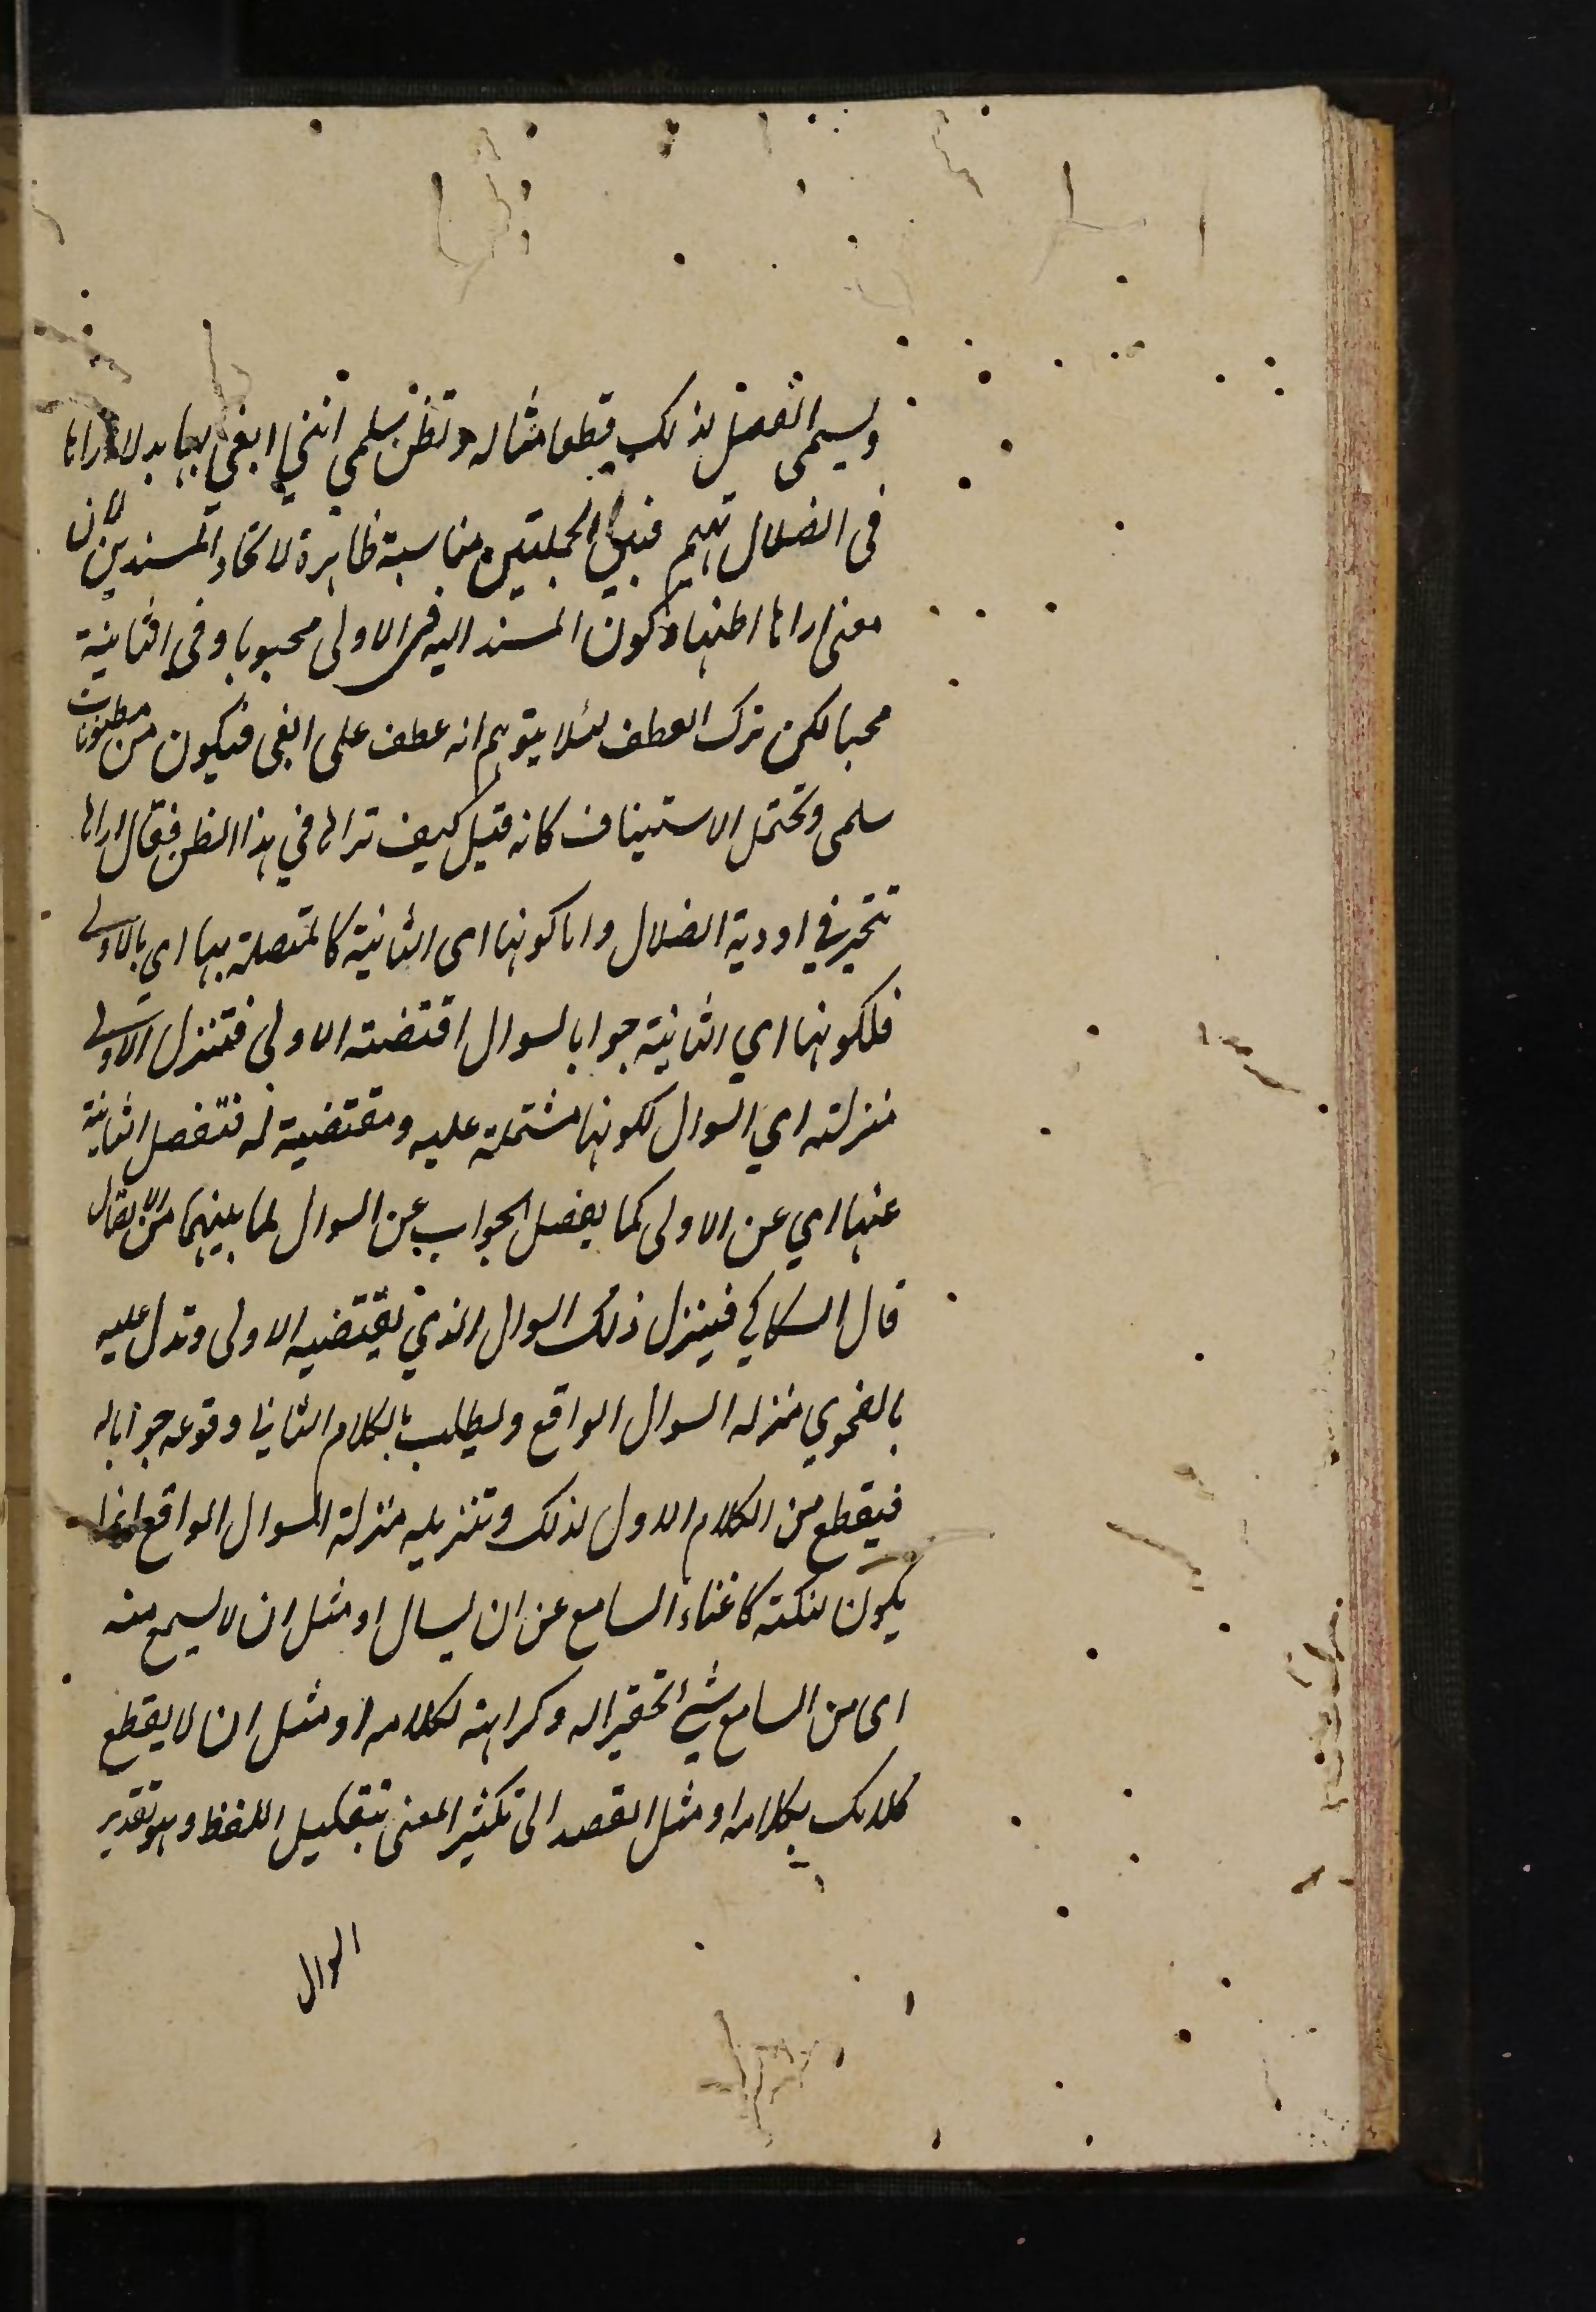 ويسمى الفصل لذلك قطعا مثاله وتظن سلمى انني ابغي بها بدلا اراها
في الضلال تهيم فبين الجملتين مناسبة ظاهرة لاتحاد المسندين لان
معنى اراها اظنها وكون المسند اليه في الاولى محبوبا وفي الثانية
محبا لكن ترك العطف لئلا يتوهم انه عطف على ابغي فيكون من مظنونات
سلمى وتحتمل الاستيناف كانه قيل كيف تراها في هذا الظن فقال اراها
تتحير في اودية الضلال واما كونها اي الثانية كالمتصلة بها اي بالاولى
فلكونها اي الثانية جوابا لسوال اقتضته الاولى فتنزل الاولى
منزلته اي السوال لكونها مشتملة عليه ومقتضية له فتفصل الثانية
عنها اي عن الاولى كما يفصل الجواب عن السوال لما بينهما من الاتصال
قال السكاكي فينزل ذلك السوال الذي تقتضيه الاولى وتدل عليه
بالفحوي منزله السوال الواقع ويطلب بالكلام الثاني وقوعه جوابا له
فيقطع من الكلام الاول لذلك وتنزيله منزلة السوال الواقع انما
يكون لنكتة كاغناء السامع عن ان يسال او مثل ان لا يسمع منه
اى من السامع شيء تحقيرا له وكراهة لكلامه او مثل ان لا يقطع
كلامك بكلامه او مثل القصد الى تكثير المعنى بتقليل اللفظ وهو تقدير
السوال